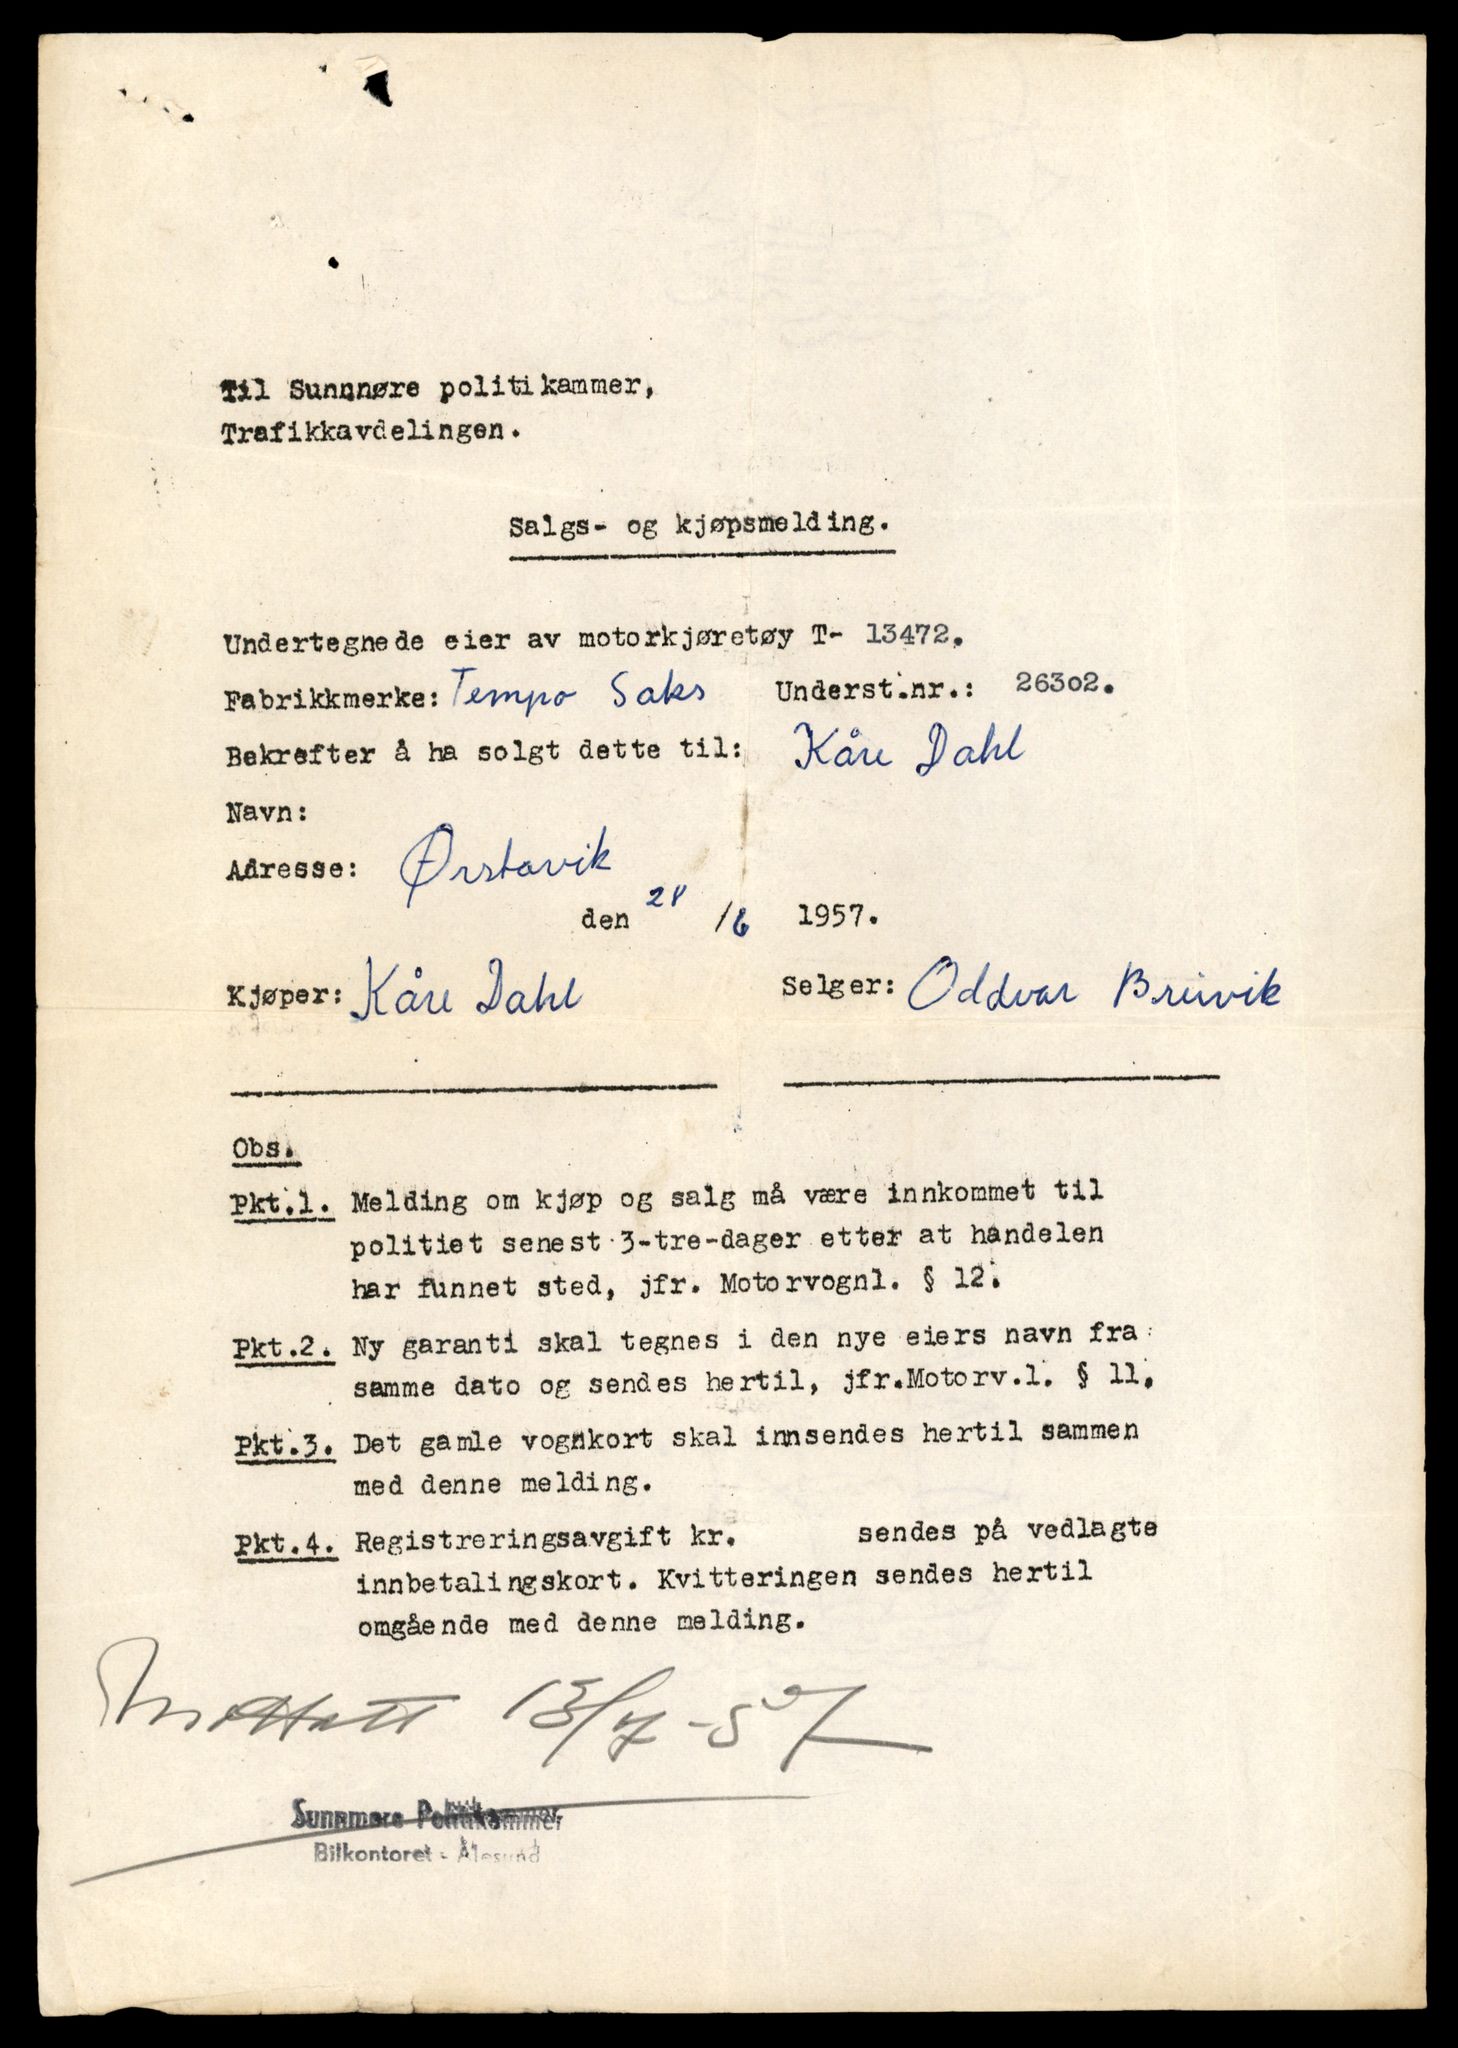 Til Sunnnøre politikammer,
Trafikkavdelingen.
Salgs- og kjøpsmelding.
Undertegnede eier av motorkjøretøy T- 13472.
Fabrikkmerke: Tempo Saks Underst.nr.: 26302.
Bekrefter å ha solgt dette til: Kåre Dahl
Navn:
Adresse: Ørstavik
den 28 /6 1957.
Kjøper: Kåre Dahl Selger: Oddvar Breivik
Obs.
Pkt.1. Melding om kjøp og salg må være innkommet til
politiet senest 3-tre-dager etter at handelen
har funnet sted, jfr. Motorvognl. § 12.
Pkt.2. Ny garanti skal tegnes i den nye eiers navn fra
samme dato og sendes hertil, jfr.Motorv.l. § 11.
Pkt.3. Det gamle vognkort skal innsendes hertil sammen
med denne melding.
Pkt.4. Registreringsavgift kr. sendes på vedlagte
innbetalingskort. Kvitteringen sendes hertil
omgående med denne melding.
Mottatt 13/7-57
Sunnmøre Politikammer
Bilkontoret - Ålesund